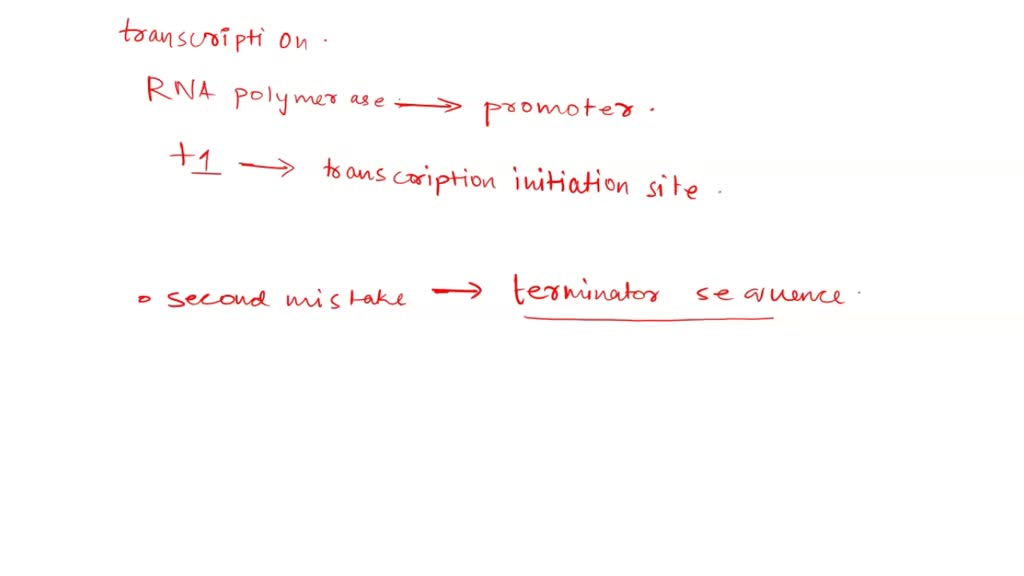 transcription.
RNA polymerase → promoter.
+1 → transcription initiation site.
• second mistake → terminator sequence.